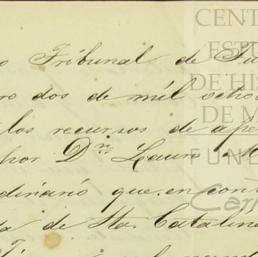 o Tribunal de Su
ro dos de mil ocho
los recursos de ape
Dn Lauro
dinario que en cont
a de Sta Catalin
CENT
EST
DE HIS
DE M
FUND
Car